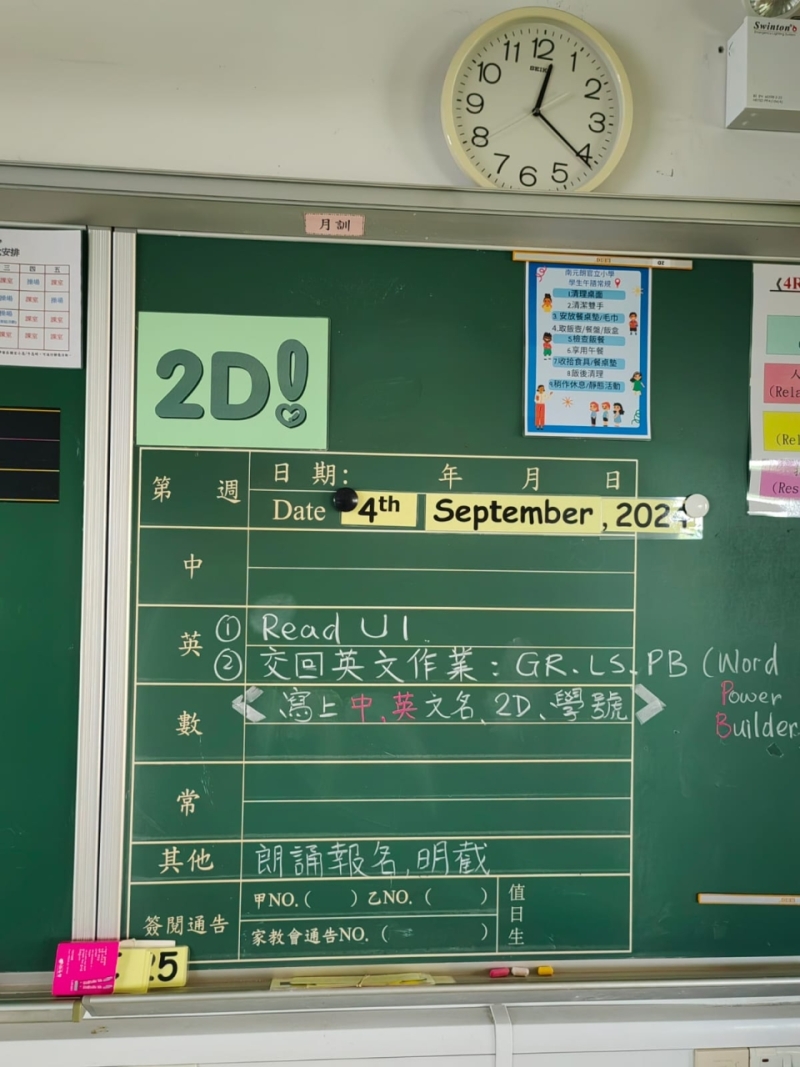 12 1 2 3 4 5 6 7 8 9 10 11
SEIKO
Swinton's
月訓
安排
三 四 五
2D!
南元朗官立小學
學生午膳常規
1清理桌面
2.清潔雙手
3.安放餐桌墊/毛巾
4.取飯壺/餐盤/飯盒
5檢查飯餐
6.享用午餐
7收拾食具/餐桌墊
8.飯後清理
9.稍作休息/靜態活動
《4R
人
(Rela
(Rel
(Res
第 週
日 期: 年 月 日
Date 4th September, 202
中
英
① Read U1.
② 交回英文作業: GR. LS. PB (Word
Power
Builder
數
< 寫上中、英文名、2D、學號 >
常
其他 朗誦報名,明截
簽閱通告
甲NO.( ) 乙NO. ( )
家教會通告NO. ( )
值日生
25